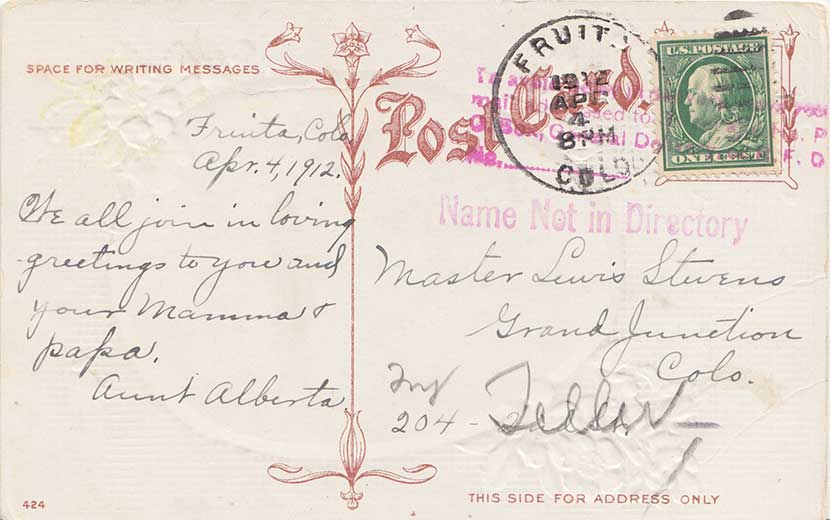 SPACE FOR WRITING MESSAGES
Post Card.
Fruita, Colo
Apr. 4, 1912.
We all join in loving
greetings to you and
your Mamma &
papa.
Aunt Alberta
FRUITA
1912
APR
4
8 PM
COLO
U.S. POSTAGE
ONE CENT
Name Not in Directory
Master Lewis Stevens
Grand Junction
Colo.
204 - Teller
424
THIS SIDE FOR ADDRESS ONLY